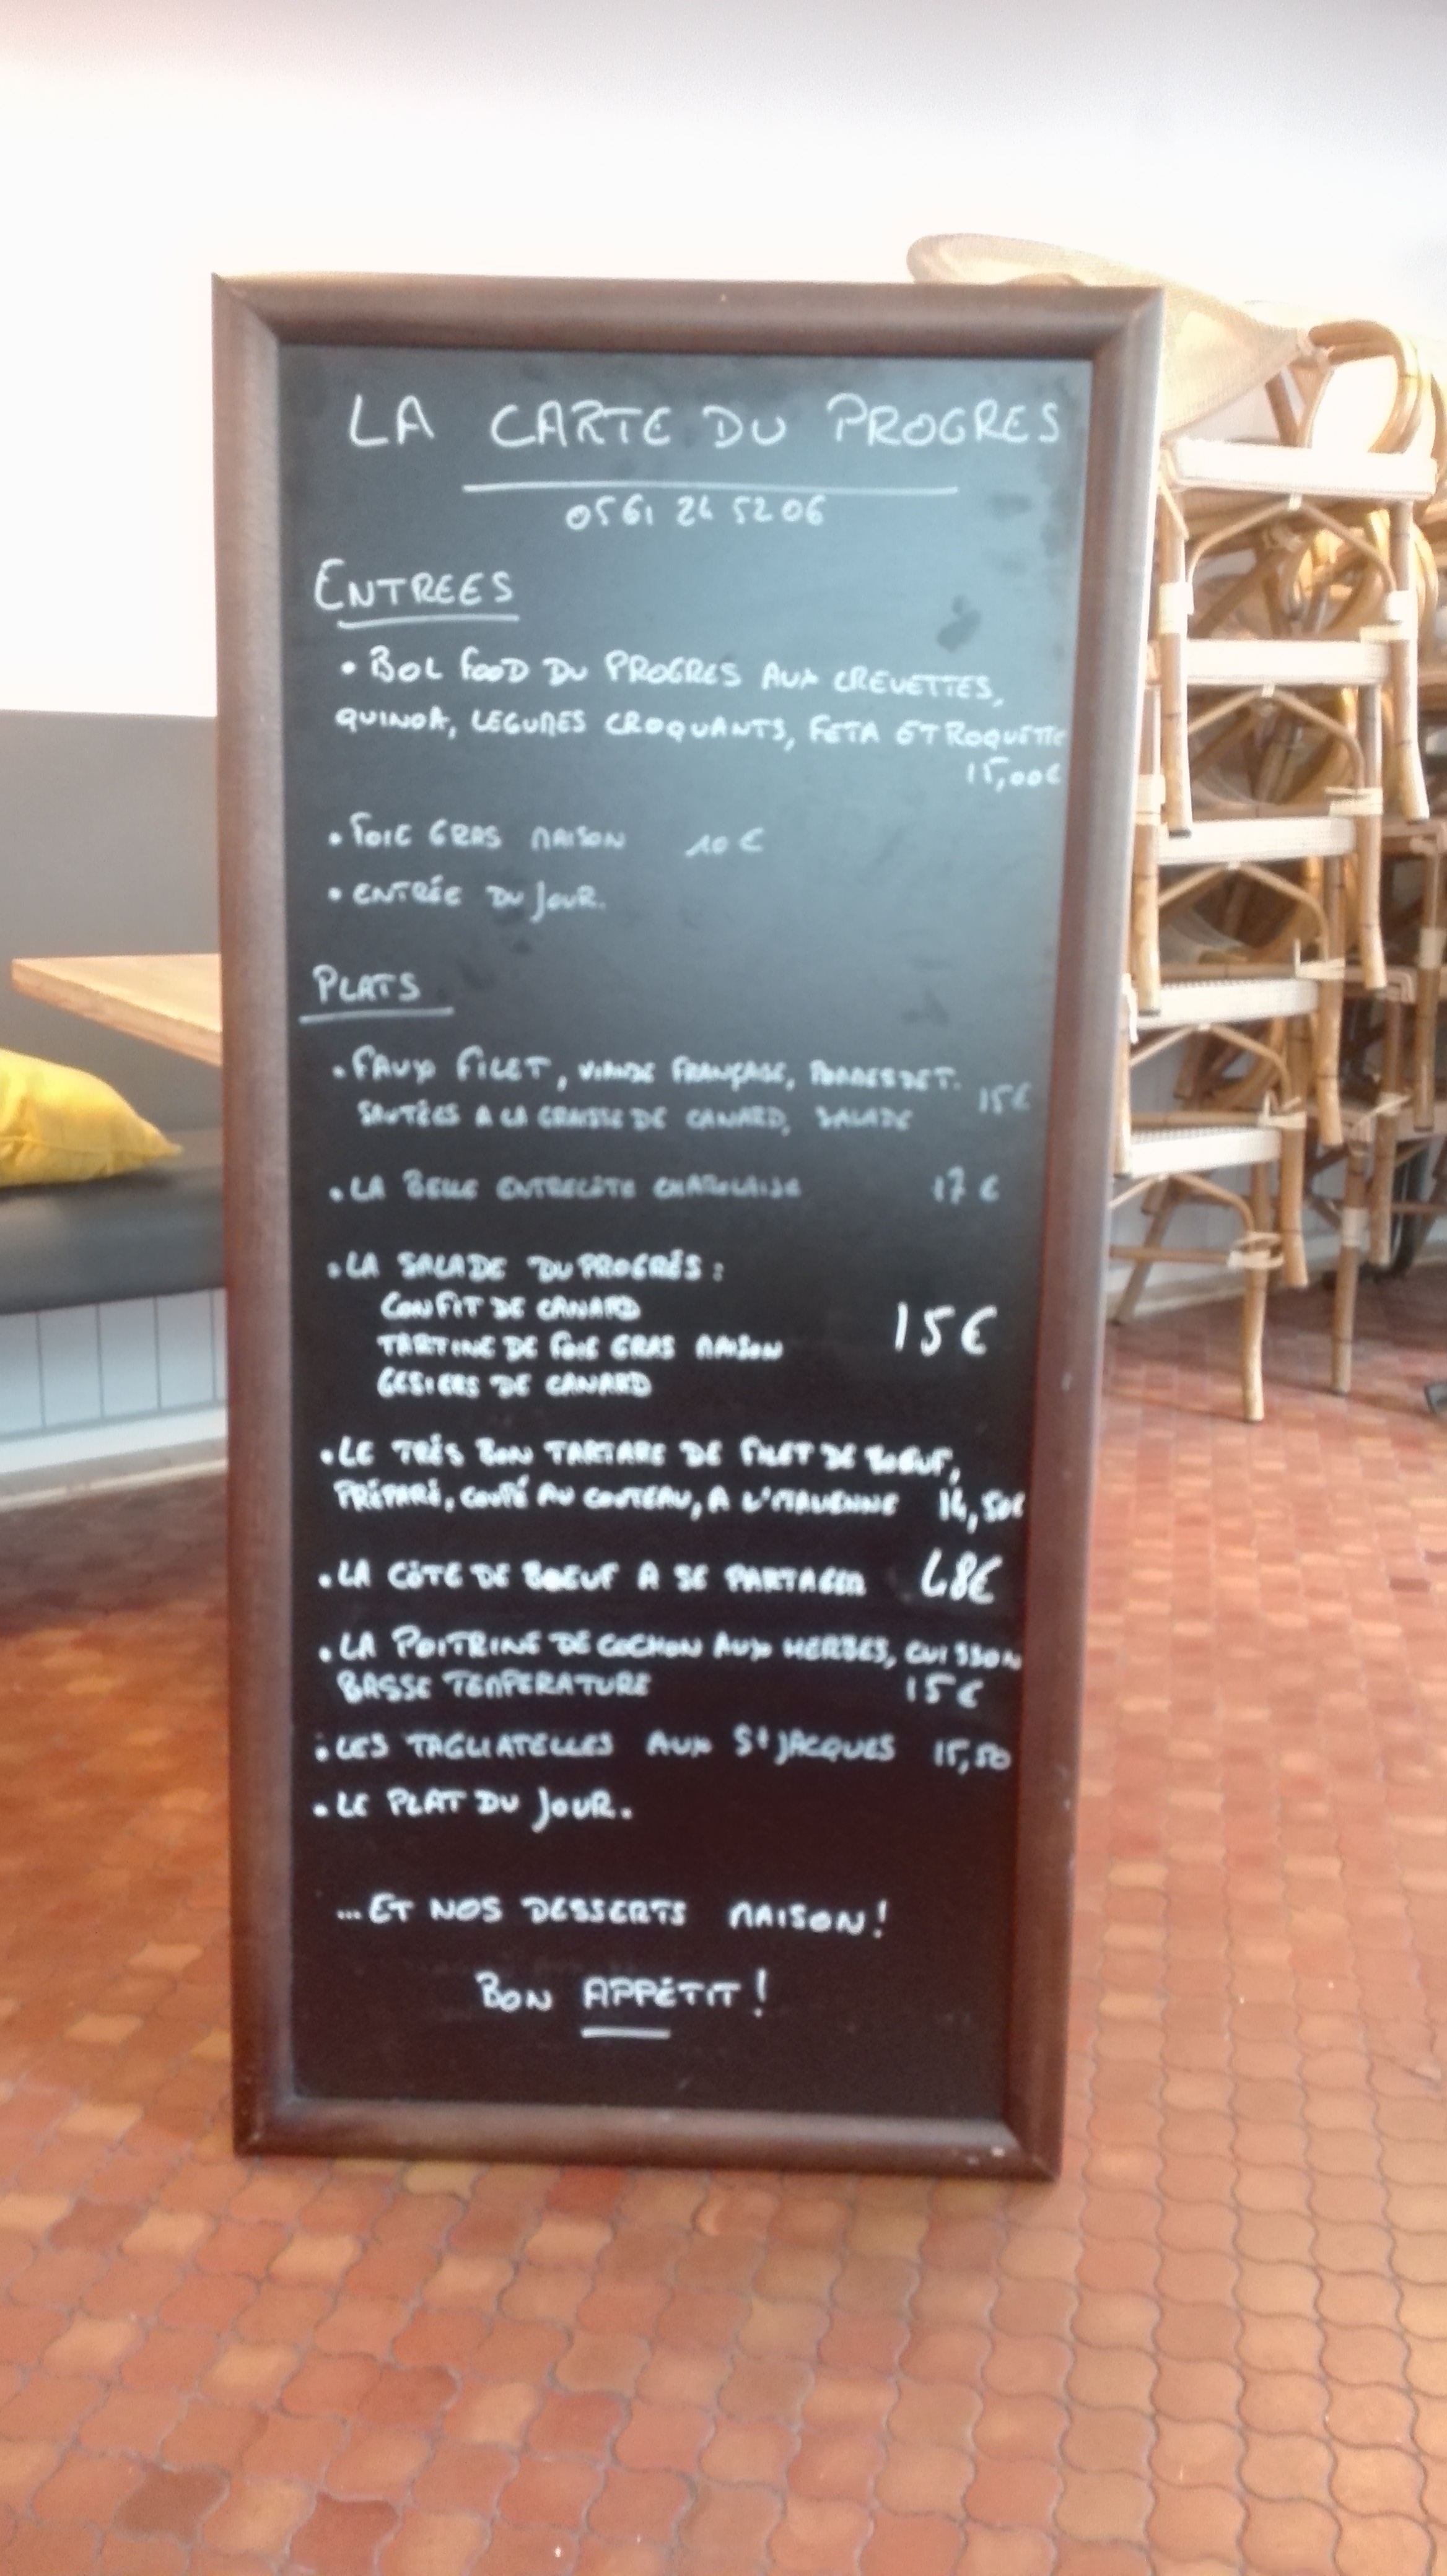 LA CARTE DU PROGRES
05 61 24 52 06
ENTREES
• BOL FOOD DU PROGRES AUX CREVETTES,
QUINOA, LEGUMES CROQUANTS, FETA ET ROQUETTE
15,00€
• FOIE GRAS MAISON 10€
• ENTRÉE DU JOUR.
PLATS
• FAUX FILET, VIANDE FRANÇAISE, POMMES DE T.
SAUTÉES A LA GRAISSE DE CANARD, SALADE 15€
• LA BELLE ENTRECÔTE CHAROLAISE 17€
• LA SALADE DU PROGRÈS :
CONFIT DE CANARD
TARTINE DE FOIE GRAS MAISON 15€
GESIERS DE CANARD
• LE TRÈS BON TARTARE DE FILET DE BOEUF,
PRÉPARÉ, COUPÉ AU COUTEAU, A L'ITALIENNE 14,50€
• LA CÔTE DE BOEUF A SE PARTAGER 48€
• LA POITRINE DE COCHON AUX HERBES, CUISSON
BASSE TEMPERATURE 15€
• LES TAGLIATELLES AUX St JACQUES 15,50
• LE PLAT DU JOUR.
... ET NOS DESSERTS MAISON !
BON APPÉTIT !